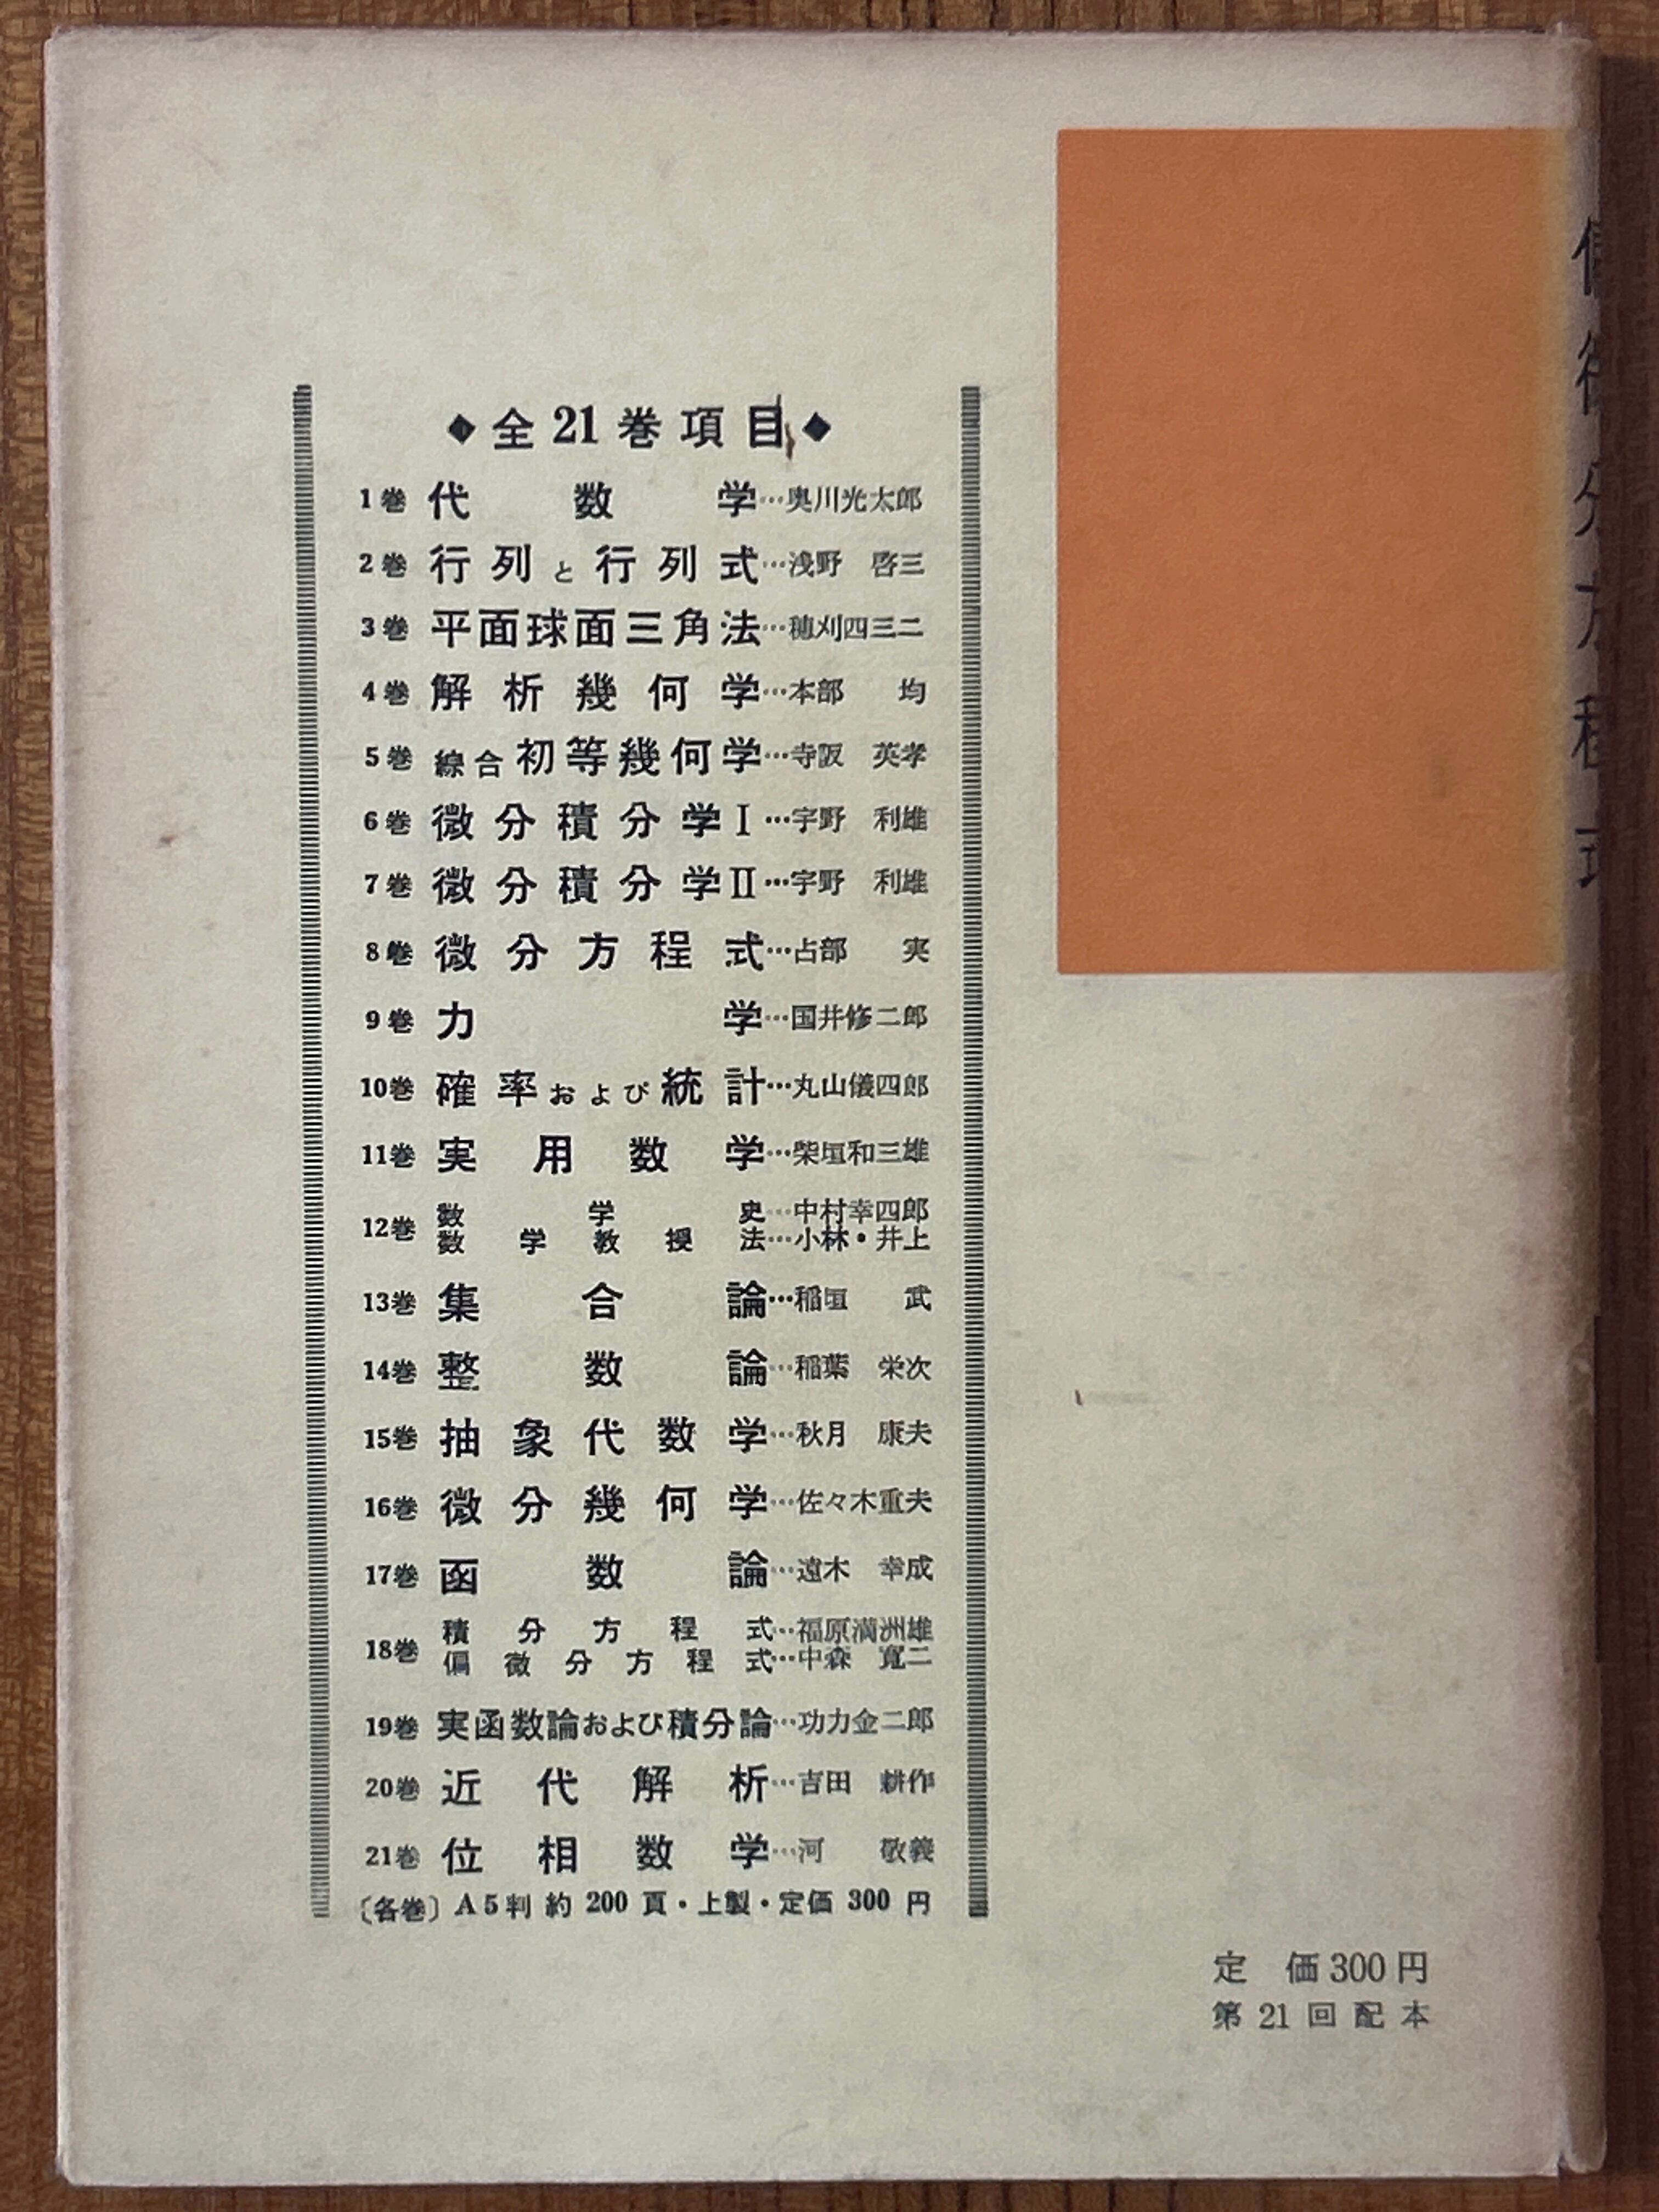 ◆全21巻項目◆
1巻 代数学…奥川光太郎
2巻 行列と行列式…浅野 啓三
3巻 平面球面三角法…穂刈四三二
4巻 解析幾何学…本部 均
5巻 綜合初等幾何学…寺阪 英孝
6巻 微分積分学Ⅰ…宇野 利雄
7巻 微分積分学Ⅱ…宇野 利雄
8巻 微分方程式…占部 実
9巻 力学…国井修二郎
10巻 確率および統計…丸山儀四郎
11巻 実用数学…柴垣和三雄
12巻 数学史…中村幸四郎
数学教授法…小林・井上
13巻 集合論…稲垣 武
14巻 整数論…稲葉 栄次
15巻 抽象代数学…秋月 康夫
16巻 微分幾何学…佐々木重夫
17巻 函数論…遠木 幸成
18巻 積分方程式…福原満洲雄
偏微分方程式…中森 寛二
19巻 実函数論および積分論…功力金二郎
20巻 近代解析…吉田 耕作
21巻 位相数学…河 敬義
〔各巻〕A5判 約 200 頁・上製・定価 300 円
定 価 300 円
第 21 回 配 本